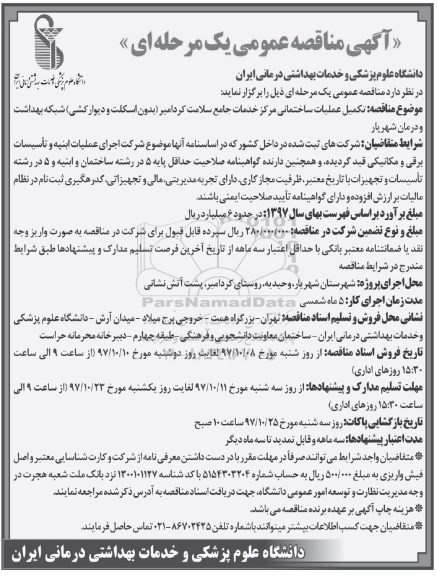 « آگهی مناقصه عمومی یک مرحله ای »
دانشگاه علوم پزشکی و خدمات بهداشتی درمانی ایران
در نظر دارد مناقصه عمومی یک مرحله ای ذیل را برگزار نماید:
موضوع مناقصه: تکمیل عملیات ساختمانی مرکز خدمات جامع سلامت کردامیر (بدون اسکلت و دیوار کشی) شبکه بهداشت
و درمان شهریار
شرایط متقاضیان: شرکت های ثبت شده در داخل کشور که در اساسنامه آنها موضوع شرکت اجرای عملیات ابنیه و تأسیسات
برقی و مکانیکی قید گردیده، و همچنین دارنده گواهینامه صلاحیت حداقل پایه ۵ در رشته ساختمان و ابنیه و ۵ در رشته
تأسیسات و تجهیزات با تاریخ معتبر، ظرفیت مجاز کاری، دارای تجربه مدیریتی، مالی و تجهیزاتی، کدرهگیری ثبت نام در نظام
مالیات بر ارزش افزوده و دارای گواهینامه تأیید صلاحیت ایمنی باشند.
مبلغ برآورد بر اساس فهرست بهای سال ۱۳۹۷: در حدود ۶ میلیارد ریال
مبلغ و نوع تضمین شرکت در مناقصه: ۲۸۰/۰۰۰/۰۰۰ ریال سپرده قابل قبول برای شرکت در مناقصه به صورت واریز وجه
نقد یا ضمانتنامه معتبر بانکی با حداقل اعتبار سه ماهه از تاریخ آخرین فرصت تسلیم مدارک و پیشنهادها طبق شرایط
مندرج در شرایط مناقصه
محل اجرای پروژه: شهرستان شهریار، وحیدیه، روستای کردامیر، پشت آتش نشانی
مدت زمان اجرای کار: ۵ ماه شمسی
نشانی محل فروش و تسلیم اسناد مناقصه: تهران -بزرگراه همت - خروجی برج میلاد - میدان آرش - دانشگاه علوم پزشکی
و خدمات بهداشتی درمانی ایران - ساختمان معاونت دانشجویی و فرهنگی - طبقه چهارم - دبیرخانه محرمانه حراست
تاریخ فروش اسناد مناقصه: از روز شنبه مورخ ۹۷/۱۰/۰۸ لغایت روز دوشنبه مورخ ۹۷/۱۰/۱۰ (از ساعت ۹ الی ساعت
۱۵:۳۰ روزهای اداری)
مهلت تسلیم مدارک و پیشنهادها: از روز سه شنبه مورخ ۹۷/۱۰/۱۱ لغایت روز یکشنبه مورخ ۹۷/۱۰/۲۳ (از ساعت ۹ الی
ساعت ۱۵:۳۰ روزهای اداری)
تاریخ بازگشایی پاکات: روز سه شنبه مورخ ۹۷/۱۰/۲۵ ساعت ۱۰ صبح
مدت اعتبار پیشنهادها: سه ماهه و قابل تمدید تا سه ماه دیگر
* متقاضیان واجد شرایط می توانند صرفاً در مهلت مقرر با در دست داشتن معرفی نامه از شرکت و کارت شناسایی معتبر و اصل
فیش واریزی به مبلغ ۵۰۰/۰۰۰ ریال به حساب شماره ۵۱۵۴۳۰۳۲۰۴ با کد شناسه ۱۳۰۰۱۰۱۱۲۷ نزد بانک ملت شعبه هجرت در
وجه مدیریت نظارت و توسعه امور عمومی دانشگاه، جهت دریافت اسناد مناقصه به آدرس ذکر شده مراجعه نمایند.
* هزینه چاپ آگهی بر عهده برنده مناقصه می باشد.
* متقاضیان جهت کسب اطلاعات بیشتر میتوانند باشماره تلفن ۸۶۷۰۲۴۲۵-۰۲۱ تماس حاصل فرمایند.
دانشگاه علوم پزشکی و خدمات بهداشتی درمانی ایران
ParsNamadData